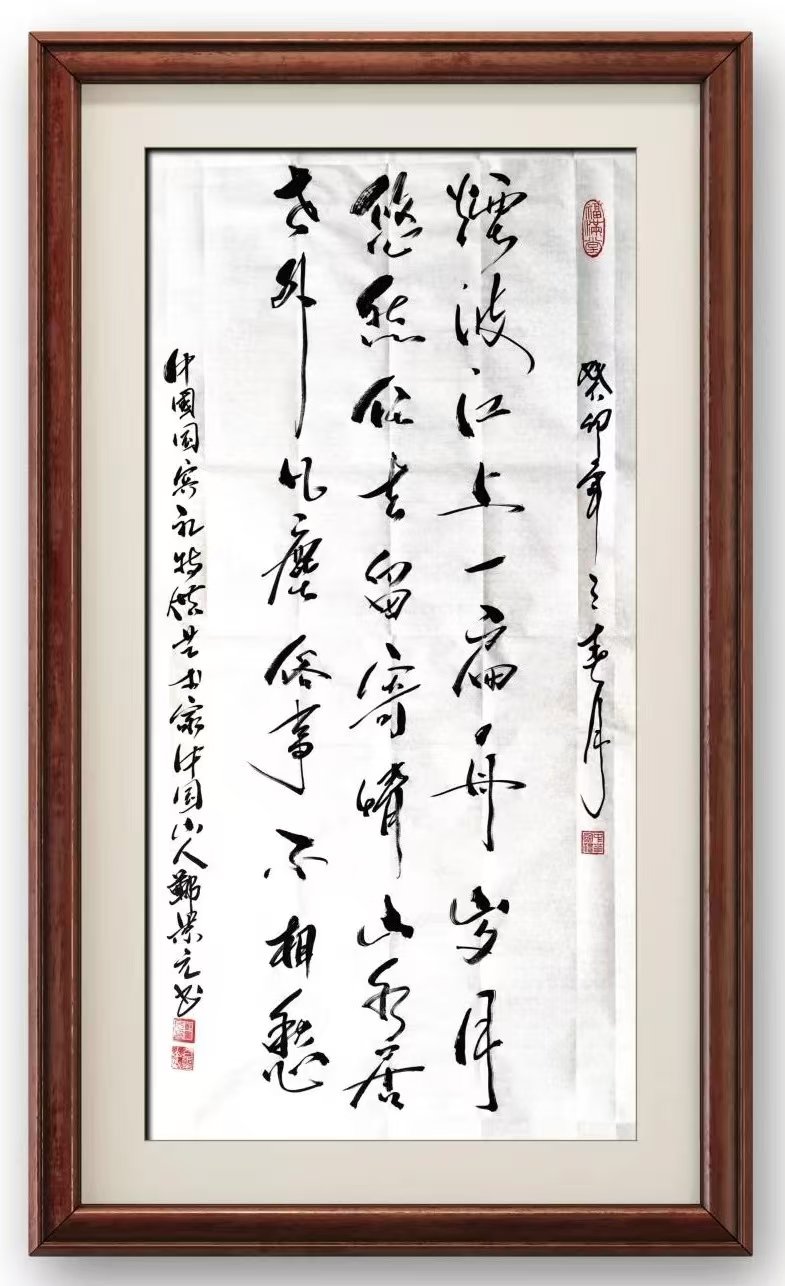 福满堂
癸卯年三春月
煙波江上一扁舟岁月
悠然任去留寄情山水居
世外凡塵俗事不相愁
中国国宾礼特供艺术家中国山人鄭荣元书